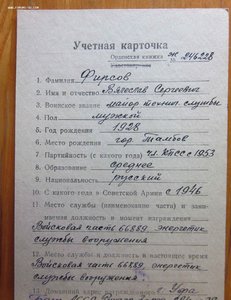 Учетная карточка
Орденская книжка Ж № 246228
1. Фамилия Фирсов
2. Имя и отчество Вячеслав Сергеевич
3. Воинское звание майор технич. службы
4. Пол мужской
5. Год рождения 1928
6. Место рождения гор. Тамбов
7. Партийность (с какого года) чл. КПСС с 1953
8. Образование среднее
9. Национальность русский
10. С какого года в Советской Армии с 1946
11. Место службы (наименование части) и занимаемая
должность в момент награждения
Войсковая часть 66889, энергетик
службы вооружения
12. Место службы и должность в настоящее время
Войсковая часть 66889, энергетик
службы вооружения
13. Домашний адрес награжденного г. Уфа